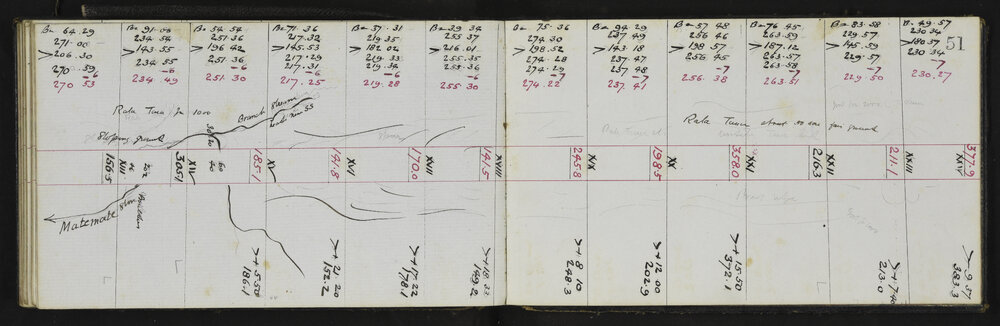 Be 64.29
271.00
>206.30
270.59
-6
270 53
Be 91.06
234.54
>143.55
234.55
-6
234 49
Be 54.54
251.36
>196 42
251.36
-6
251.30
Be 71.36
217.26
>145.53
217.29
217.31
-6
217.25
Be 37.31
219.35
>182 02
219.33
219.34
-6
219.28
Be 39.34
255 37
>216.01
255.35
255.36
-6
255 30
Be 75.36
274 30
>198.52
274.28
274.29
-7
274.22
Be 94.29
237 49
>143.18
237.47
237 48
-7
237.41
Be 57 48
256 46
>198 57
256 45
-7
256.38
Be 76 45
263.59
>187.12
263.57
263.58
-7
263.51
Be 83.58
229.57
>145.59
229.57
-7
229.50
Be 49.57
230 34
>180 37
230 34
-7
230.27
51
Branch Stream
Slipping ground
Rata Tawa about 50 000 fair ground
156.5
XIII
305.1
XIV
185.1
XV
141.8
XVI
170.0
XVII
141.5
XVIII
245.8
XIX
198.5
XX
358.0
XXI
216.3
XXII
211.1
XXIII
377.9
XXIV
Matemate Stm
Boulders
>+5.50
186.1
>+21.20
152.2
>+17.22
178.1
>+18.33
149.2
>+8.10
248.3
>+12.00
202.9
>+15.50
372.1
213.0
>-9.57
383.3